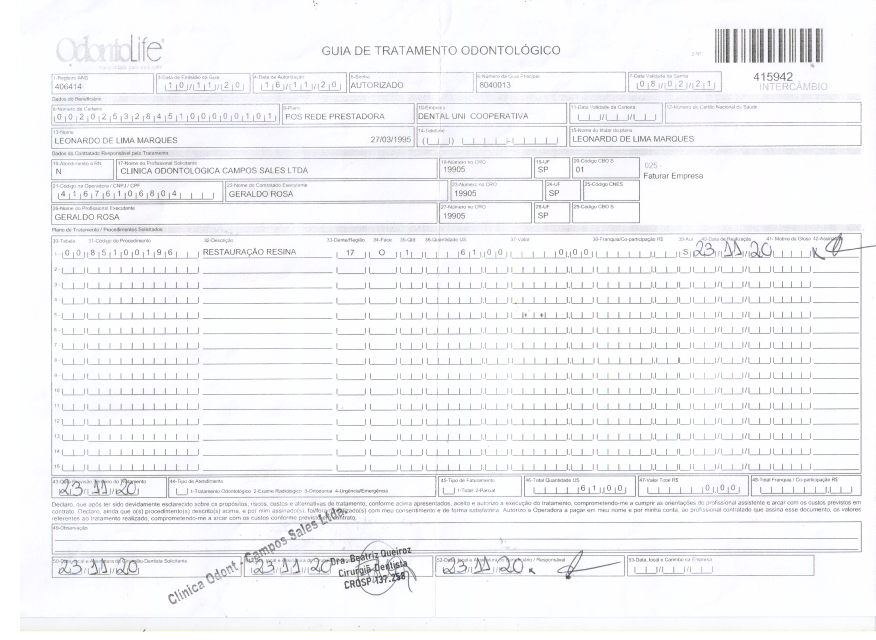 OdontoLife
GUIA DE TRATAMENTO ODONTOLÓGICO
2-Nº
415942
INTERCÂMBIO
1-Registro ANS
406414
3-Data de Emissão da Guia
10/11/20
4-Data de Autorização
16/11/20
5-Senha
AUTORIZADO
6-Número da Guia Principal
6040013
7-Data Validade da Senha
08/02/21
Dados do Beneficiário
8-Número da Carteira
00202532845100000101
9-Plano
POS REDE PRESTADORA
10-Empresa
DENTAL UNI COOPERATIVA
11-Data Validade da Carteira
12-Número do Cartão Nacional de Saúde
13-Nome
LEONARDO DE LIMA MARQUES 27/03/1995
14-Telefone
15-Nome do titular do plano
LEONARDO DE LIMA MARQUES
Dados do Contratado Responsável pelo Tratamento
16-Atendimento a RN
N
17-Nome do Profissional Solicitante
CLINICA ODONTOLOGICA CAMPOS SALES LTDA
18-Número no CRO
19905
19-UF
SP
20-Código CBO S
01
025 -
Faturar Empresa
21-Código na Operadora / CNPJ / CPF
41676106804
22-Nome do Contratado Executante
GERALDO ROSA
23-Número no CRO
19905
24-UF
SP
25-Código CNES
26-Nome do Profissional Executante
GERALDO ROSA
27-Número no CRO
19905
28-UF
SP
29-Código CBO S
Plano de Tratamento / Procedimentos Solicitados
30-Tabela 31-Código do Procedimento 32-Descrição 33-Dente/Região 34-Face 35-Qtd 36-Quantidade US 37-Valor 38-Franquia/Co-participação R$ 39-Aut 40-Data de Realização 41- Motivo da Glosa 42-Assinatura
1- 00 85100196 RESTAURAÇÃO RESINA 17 O 1 61,00 0,00 S 23 11 20
2-
3-
4-
5-
6-
7-
8-
9-
10
11
12
13
14
15
43-Data Previsão Término do Tratamento
23/11/20
44-Tipo de Atendimento
1-Tratamento Odontológico 2-Exame Radiológico 3-Ortodontia 4-Urgência/Emergência
45-Tipo de Faturamento
1-Total 2-Parcial
46-Total Quantidade US
61,00
47-Valor Total R$
0,00
48-Total Franquia / Co-participação R$
Declaro, que após ter sido devidamente esclarecido sobre os propósitos, riscos, custos e alternativas de tratamento, conforme acima apresentados, aceito e autorizo a execução do tratamento, comprometendo-me a cumprir as orientações do profissional assistente e arcar com os custos previstos em
contrato. Declaro, ainda que o(s) procedimento(s) descrito(s) acima, e por mim assinado(s), foi/foram realizado(s) com meu consentimento e de forma satisfatória. Autorizo a Operadora a pagar em meu nome e por minha conta, ao profissional contratado que assina esse documento, os valores
referentes ao tratamento realizado, comprometendo-me a arcar com os custos conforme previsto em contrato.
49-Observação
Clínica Odont. Campos Sales Ltda.
23/11/20
23/11/20
Dra. Beatriz Queiroz
Cirurgiã-Dentista
CROSP 137.256
23/11/20
53-Data, local e Carimbo da Empresa